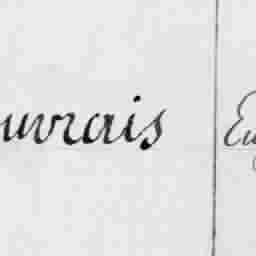 uvrais Eu